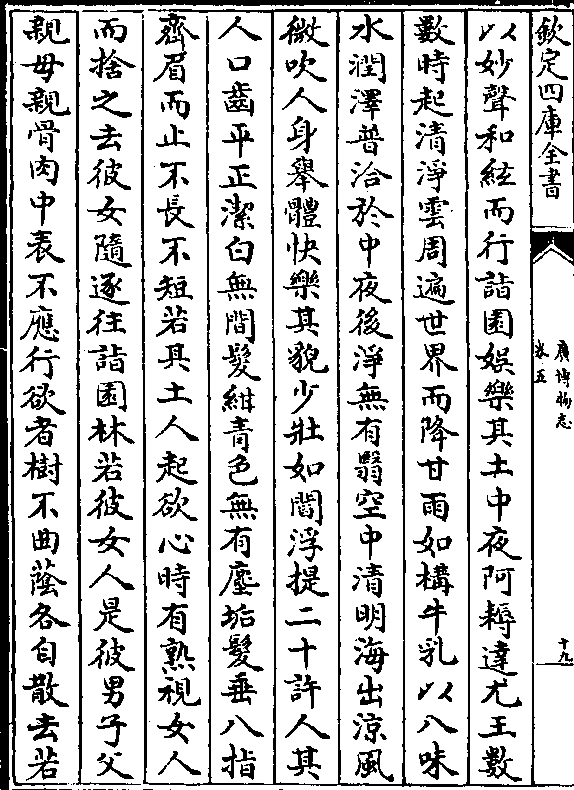 欽定四庫全書
廣博物志
卷五
十九
以妙聲和絃而行詣園娛樂其土中夜阿耨達尤王數
數時起清淨雲周遍世界而降甘雨如構牛乳以八味
水潤澤普洽於中夜後淨無有翳空中清明海出涼風
微吹人身舉體快樂其貌少壯如閻浮提二十許人其
人口齒平正潔白無間髮紺青色無有塵垢髮垂八指
齊眉而止不長不短若其土人起欲心時有熟視女人
而捨之去彼女隨逐往詣園林若彼女人是彼男子父
親母親骨肉中表不應行欲者樹不曲蔭各自散去若